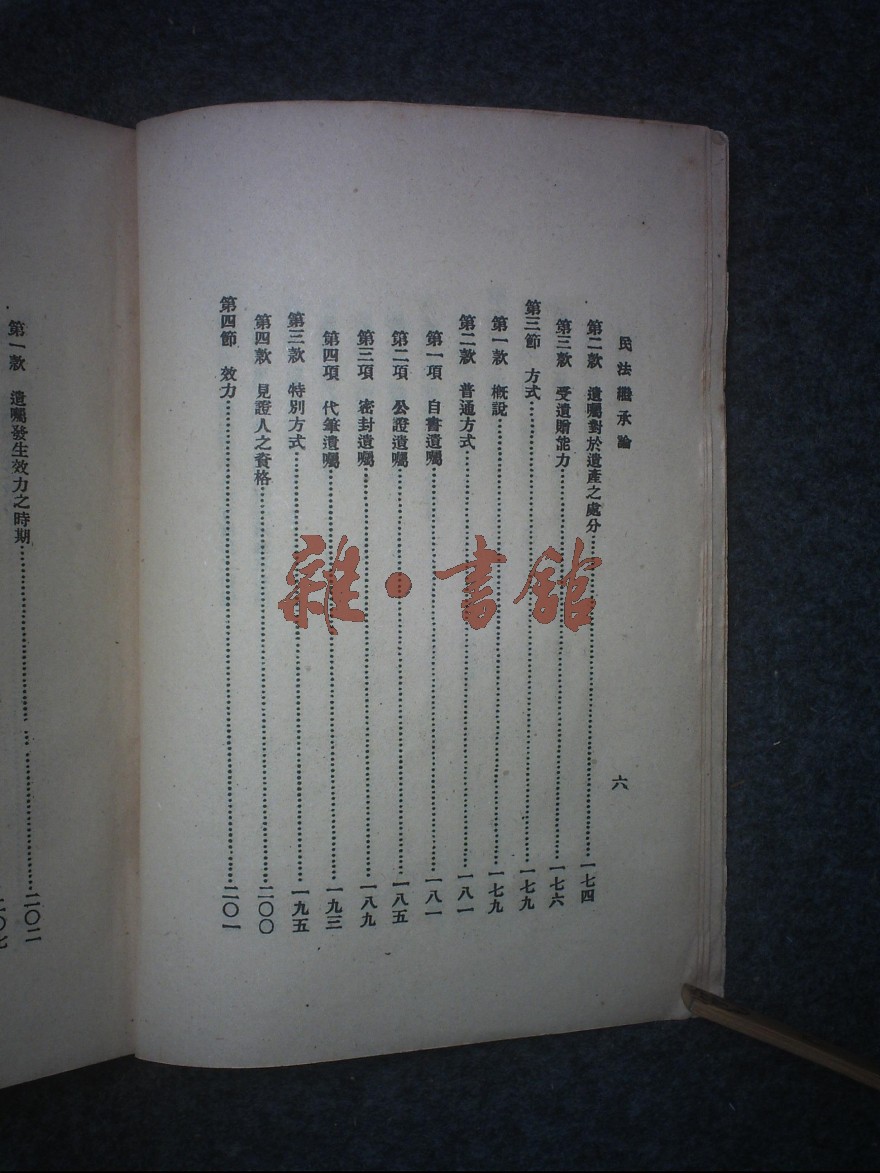 民法繼承論
六
第二款 遺囑對於遺產之處分……一七四
第三款 受遺贈能力……一七六
第三節 方式……一七九
第一款 概說……一七九
第二款 普通方式……一八一
第一項 自書遺囑……一八一
第二項 公證遺囑……一八五
第三項 密封遺囑……一八九
第四項 代筆遺囑……一九三
第三款 特別方式……一九五
第四款 見證人之資格……二〇〇
第四節 效力……二〇一
第一款 遺囑發生效力之時期……二〇二
二〇七
雜·書館